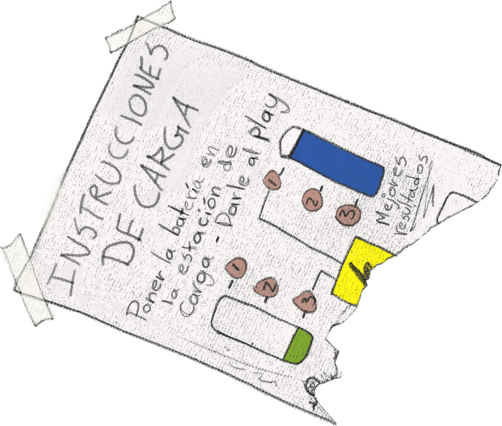 INSTRUCCIONES
DE CARGA
Poner la batería en
la estación de
Carga - Darle al play
1
2
3
Mejores
resultados
1
2
3